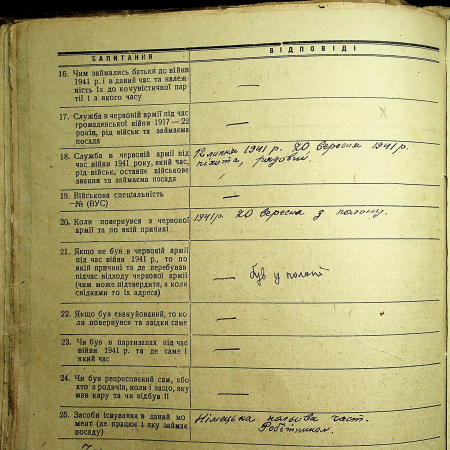 ЗАПИТАННЯ
ВІДПОВІДІ
16. Чим займались батьки до війни
1941 р. і в даний час та належ-
ність їх до комуністичної пар-
тії і з якого часу
—
17. Служба в червоній армії під час
громадянської війни 1917—22
років, рід військ та займаєма
посада
—
18. Служба в червоній армії під
час війни 1941 року, який час,
рід військ, останнє військове
звання та займаєма посада
12 липня 1941 р. 20 вересня 1941 р.
піхота, рядовий.
19. Військова спеціяльність
—№ (ВУС)
—
20. Коли повернувся з червоної
армії та по якій причині
1941 р. 20 вересня з полону.
21. Якщо не був в червоній армії
під час війни 1941 р., то по
якій причині та де перебував
підчас відходу червоної армії
(чим може підтвердити, а коли
свідками то їх адреса)
— був у полоні
22. Якщо був евакуйований, то ко-
ли повернувся та звідки саме
—
23. Чи був в партизанах під час
війни 1941 р. та де саме і
який час
—
24. Чи був репресований сам, або
хто з родичів, коли і защо, яку
мав кару та чи відбув її
—
25. Засоби існування в даний мо-
мент (де працює і яку займає
посаду)
Німецька част.
Робітником.